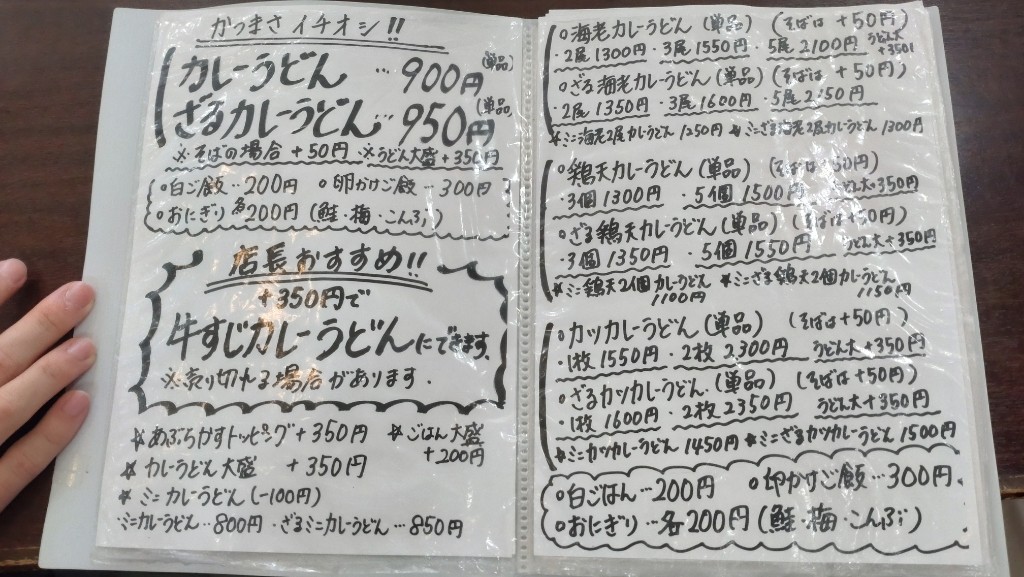 かつまさ イチオシ!!
カレーうどん … 900円 (単品)
ざるカレーうどん … 950円 (単品)
※そばの場合 +50円 ※うどん大盛+350円
○白ご飯…200円 ○卵かけご飯…300円
○おにぎり 各200円 (鮭・梅・こんぶ)
店長おすすめ!!
+350円で
牛すじカレーうどんにできます。
※売り切れる場合があります.
☆あぶらかすトッピング+350円 ☆ごはん大盛 +200円
☆カレーうどん大盛 +350円
☆ミニカレーうどん (-100円)
・ミニカレーうどん…800円・ざるミニカレーうどん…850円
○海老カレーうどん (単品) (そばは +50円)
・2尾 1300円・3尾 1550円・5尾 2100円 うどん大 +350円
○ざる海老カレーうどん (単品) (そばは +50円)
・2尾 1350円・3尾 1600円・5尾 2150円
☆ミニ海老2尾カレーうどん 1250円 ☆ミニざる海老2尾カレーうどん 1300円
○鶏天カレーうどん (単品) (そばは +50円)
・3個 1300円・5個 1500円 うどん大+350円
○ざる鶏天カレーうどん (単品) (そばは+50円)
・3個 1350円・5個 1550円 うどん大+350円
☆ミニ鶏天2個カレーうどん 1100円 ☆ミニざる鶏天2個カレーうどん 1150円
○カツカレーうどん (単品) (そばは+50円)
・1枚 1550円・2枚 2300円 うどん大+350円
○ざるカツカレーうどん. (単品) (そばは+50円)
・1枚 1600円・2枚 2350円 うどん大+350円
☆ミニカツカレーうどん 1450円 ☆ミニざるカツカレーうどん 1500円
○白ごはん…200円 ○卵かけご飯…300円.
○おにぎり…各200円 (鮭・梅・こんぶ)